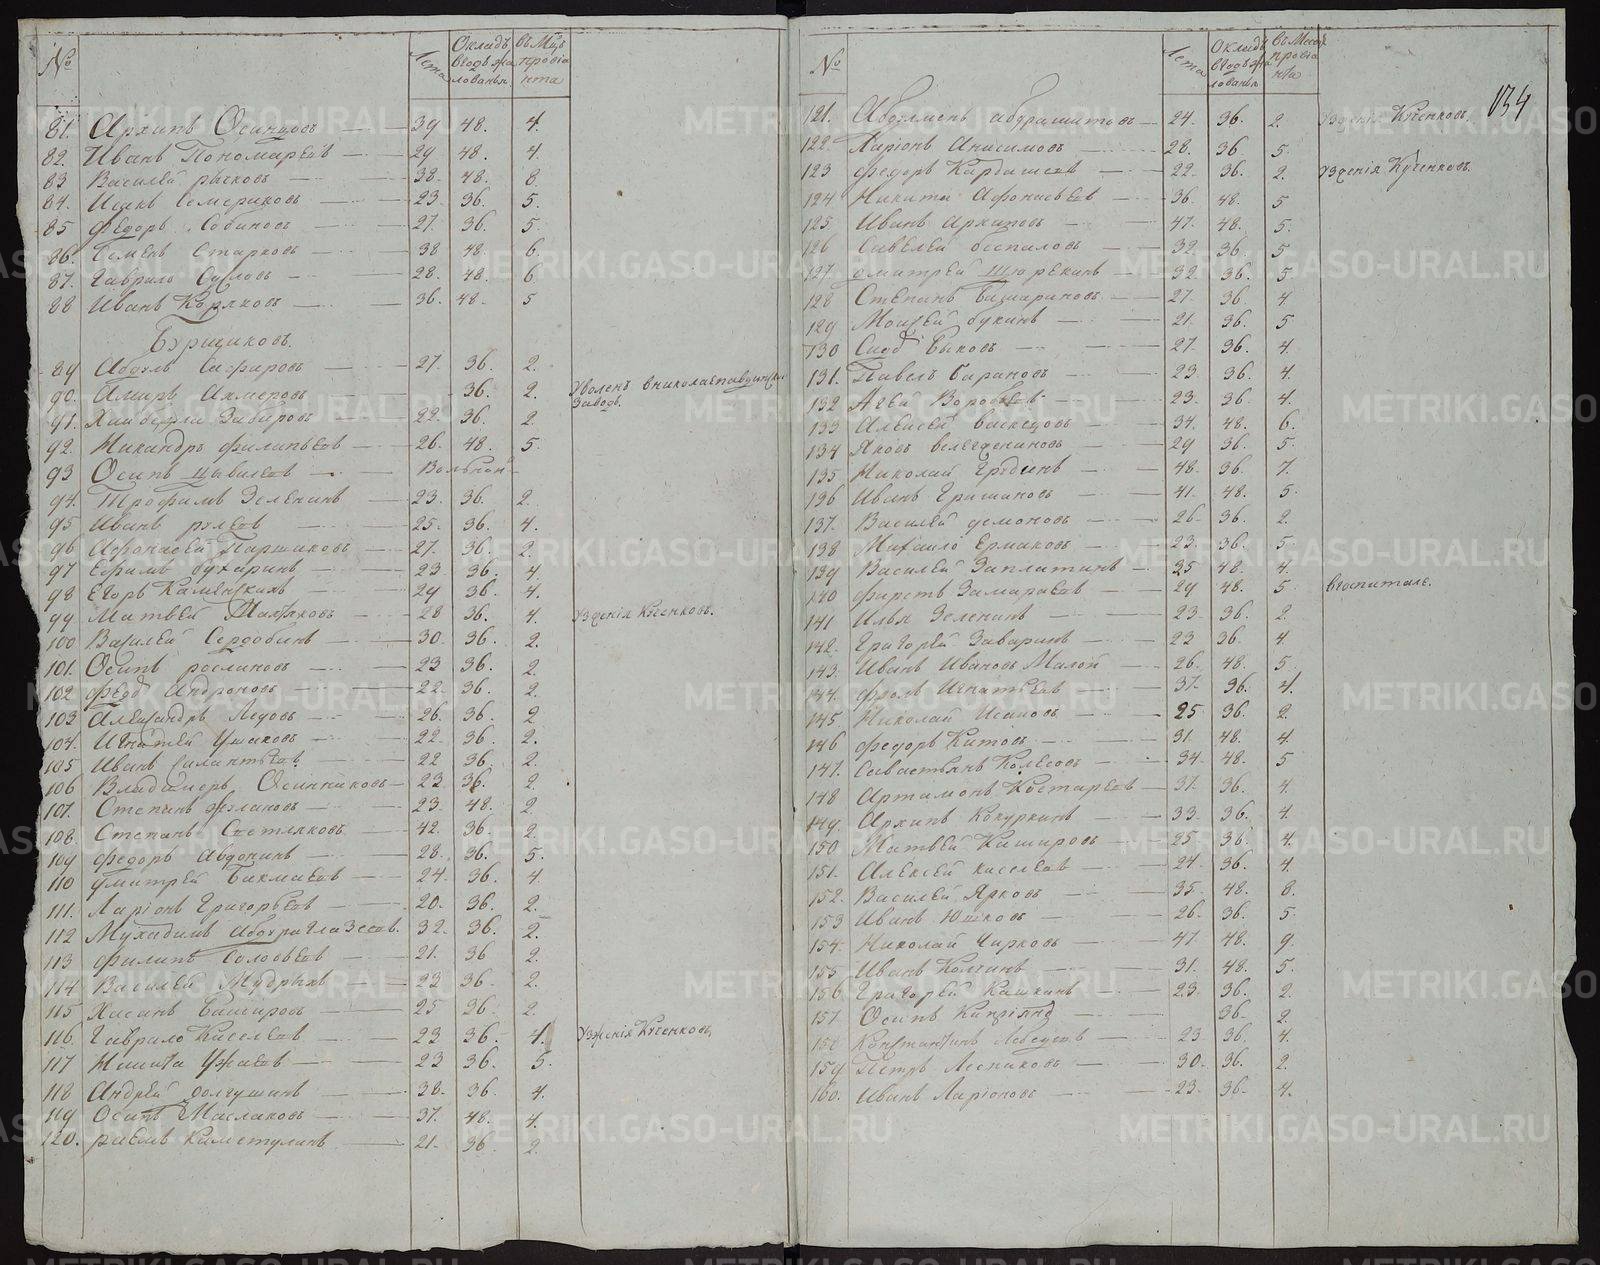 № Лета Окладъ вгодъ жалованья въ Мцъ провіанта
81. Архипъ Осинцовъ 39 48. 4.
82. Иванъ Пономаревъ 29 48. 4.
83 Василей рычковъ 38. 48. 8.
84. Исакъ Семериковъ 23. 36. 5.
85 федоръ Собиновъ 27. 36. 5.
86. Семенъ Старковъ 38 48. 6.
87. Гаврило Сусловъ 28. 48. 6.
88 Иванъ Коряковъ 36. 48. 5
Бэрщиковъ.
89 Абдулъ Сафировъ 27. 36. 2.
90. Амиръ Ахмеровъ 36. 2. Уволенъ вниколаепавдинской Заводъ.
91. Хайбулла Забировъ 22. 36. 2.
92. Никандръ филипьевъ 26. 48. 5.
93 Осипъ Цывилевъ Вольной
94. Трофимъ Зеленинъ 23. 36. 2.
95 Иванъ рулевъ 25. 36. 4.
96 Афонасей Паршаковъ 27. 36. 2.
97 Ефимъ бухаринъ 23 36. 4
98 Егоръ Каменскихъ 29 36. 4.
99 Матвей 28 36. 4.
100 Василей Сердобинъ 30. 36. 2.
101. Осипъ рослиновъ 23 36. 2.
102 федоръ Андроновъ 22. 36. 2.
103 Александръ Ледовъ 26. 36. 2
104. Игнатей Ушаковъ 22. 36. 2.
105 Иванъ Силантьевъ 22 36. 2.
106 Владимеръ Осинниковъ 23 36. 2.
107. Степанъ Ждановъ 23. 48. 2.
108. Степанъ Светлаковъ 42. 36. 2.
109 федоръ Авдонинъ 28. 36. 5.
110 дмитрей Бикмаевъ 24. 36. 4.
111. Ларіонъ Григорьевъ 20. 36. 2.
112 32. 36. 2.
113 филипъ Соловьевъ 21. 36 2.
114 Василей Мудрыхъ 23 36. 2.
115 Хисинъ Башировъ 25 36. 2.
116. Гаврило Киселевъ 23 36. 4.
117 Никита Ужаевъ 23 36. 5.
118 Андрей долгушинъ 38. 36. 4.
119 Осипъ Маслаковъ 37. 48. 4.
120. 21. 36 2.
134
№ Лета Окладъ вгодъ жалованья въ Месецъ провіанта
121. 24. 36. 2.
122. Ларіонъ Анисимовъ 28. 36 5.
123 федоръ Кардашевъ 22. 36. 2.
124 Никита Афонасьевъ 36. 48. 5
125 Иванъ Архиповъ 47. 48. 5.
126 Савелей беспаловъ 32. 36. 5
127. дмитрей Щюрекинъ 32. 36. 5
128 Степанъ 27. 36 4
129 Моисей букинъ 21. 36. 5
130 Сидоръ Быковъ 27. 36. 4.
131. Павелъ барановъ 23 36. 4.
132 Агей Воровьевъ 23. 36 4.
133 Алексей васкецовъ 34. 48. 6.
134 Яковъ 29 36. 5.
135 Николай Гребинъ 48. 36. 7.
136 Иванъ Гришановъ 41. 48. 5.
137. Василей демоновъ 26. 36. 2.
138 Михаило Ермаковъ 23 36. 5.
139 Василей Заплатинъ 35 48. 4.
140 фирстъ Замараевъ 29 48. 5 вгоспитале.
141 Илья Зеленинъ 23. 36. 2.
142. Григорей Заваринъ 23 36. 4
143. Иванъ Ивановъ Малой 26. 48. 5
144. фролъ Игнатьевъ 37. 36. 4.
145 Николай Исаковъ 25 36. 2.
146 федоръ Китовъ 31. 48. 4.
147. Севастьянъ Колесовъ 34. 48. 5
148 Артамонъ Костаревъ 37. 36. 4.
149. Архипъ Кокуркинъ 33. 36. 4.
150 Матвей Кашировъ 25 36. 4.
151. Алексей киселевъ 24. 36. 4.
152. Василей Ярковъ 35. 48. 8.
153 Иванъ Юшковъ 26. 36. 5.
154. Николай Чирковъ 47. 48. 9.
155 Иванъ Колчинъ 31. 48. 5.
156 Григорей Кашкинъ 23. 36. 2.
157. Осипъ 36. 2.
158 Константинъ Лебедевъ 23 36. 4.
159 Петръ Лесниковъ 30. 36. 2.
160. Иванъ Ларіоновъ 23. 36. 4.
METRIKI.GASO-URAL.RU